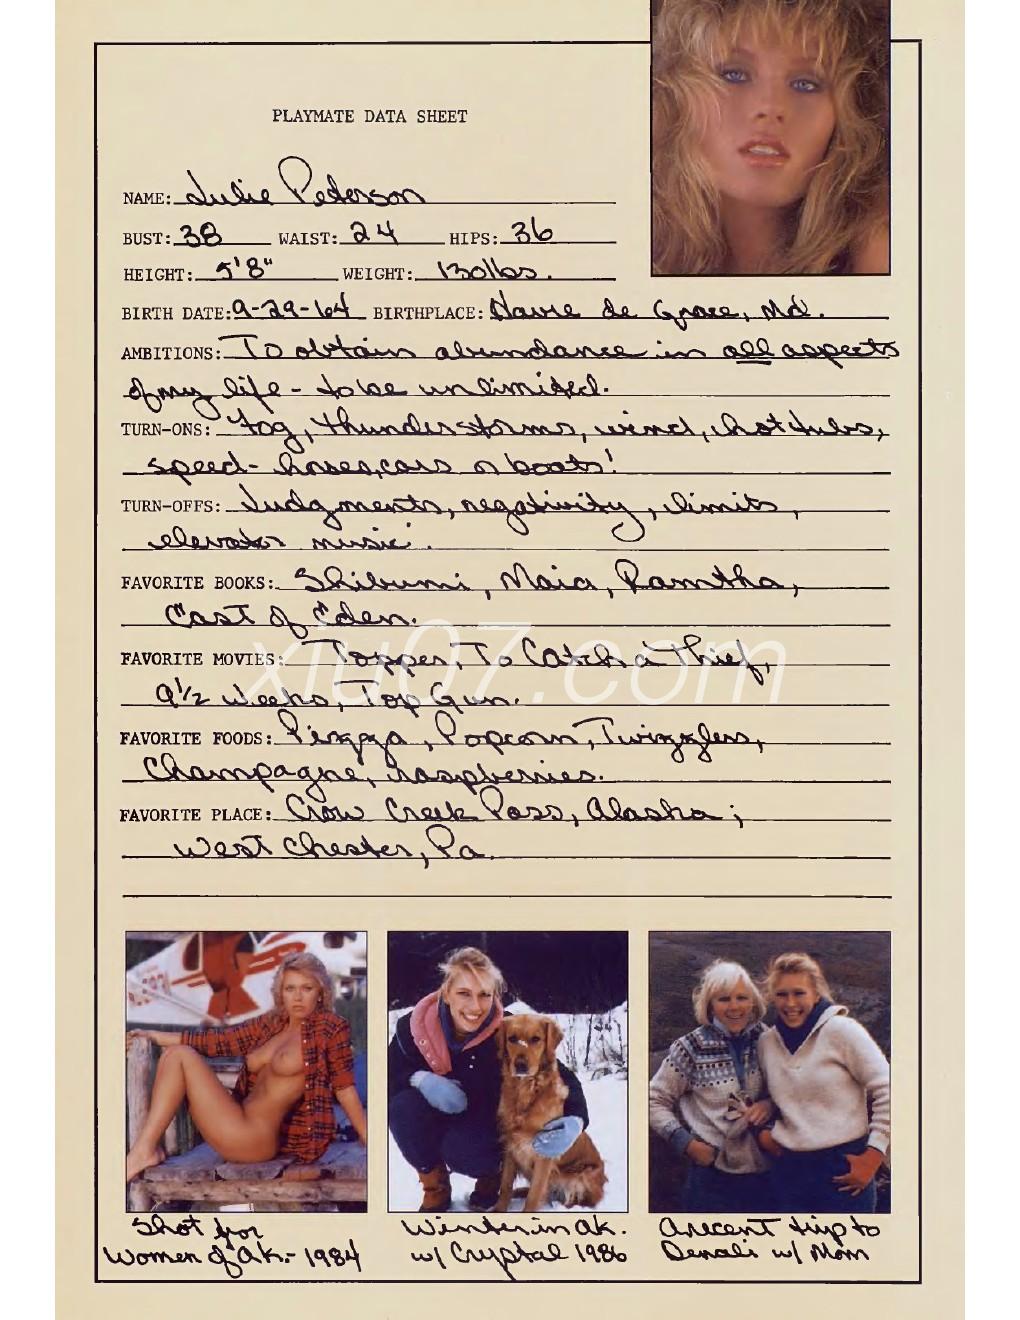 PLAYMATE DATA SHEET
NAME: Julie Peterson
BUST: 38 WAIST: 24 HIPS: 36
HEIGHT: 5'8" WEIGHT: 130lbs.
BIRTH DATE: 9-29-64 BIRTHPLACE: Havre de Grace, Md.
AMBITIONS: To obtain abundance in all aspects
of my life - to be unlimited.
TURN-ONS: Fog, thunderstorms, wind, hot tubs,
speed - horses, cars n boats!
TURN-OFFS: Judgments, negativity, limits,
elevator music.
FAVORITE BOOKS: Shibumi, Maia, Ramtha,
East of Eden.
FAVORITE MOVIES: Topper, To Catch a Thief,
9½ Weeks, Top Gun.
xiu07.com
FAVORITE FOODS: Pizzza, Popcorn, Twizzlers,
Champagne, raspberries.
FAVORITE PLACE: Crow Creek Pass, Alaska;
West Chester, Pa.
Shot for
Women of Ak. - 1984
Winter in Ak.
w/ Crystal 1986
A recent trip to
Denali w/ Mom